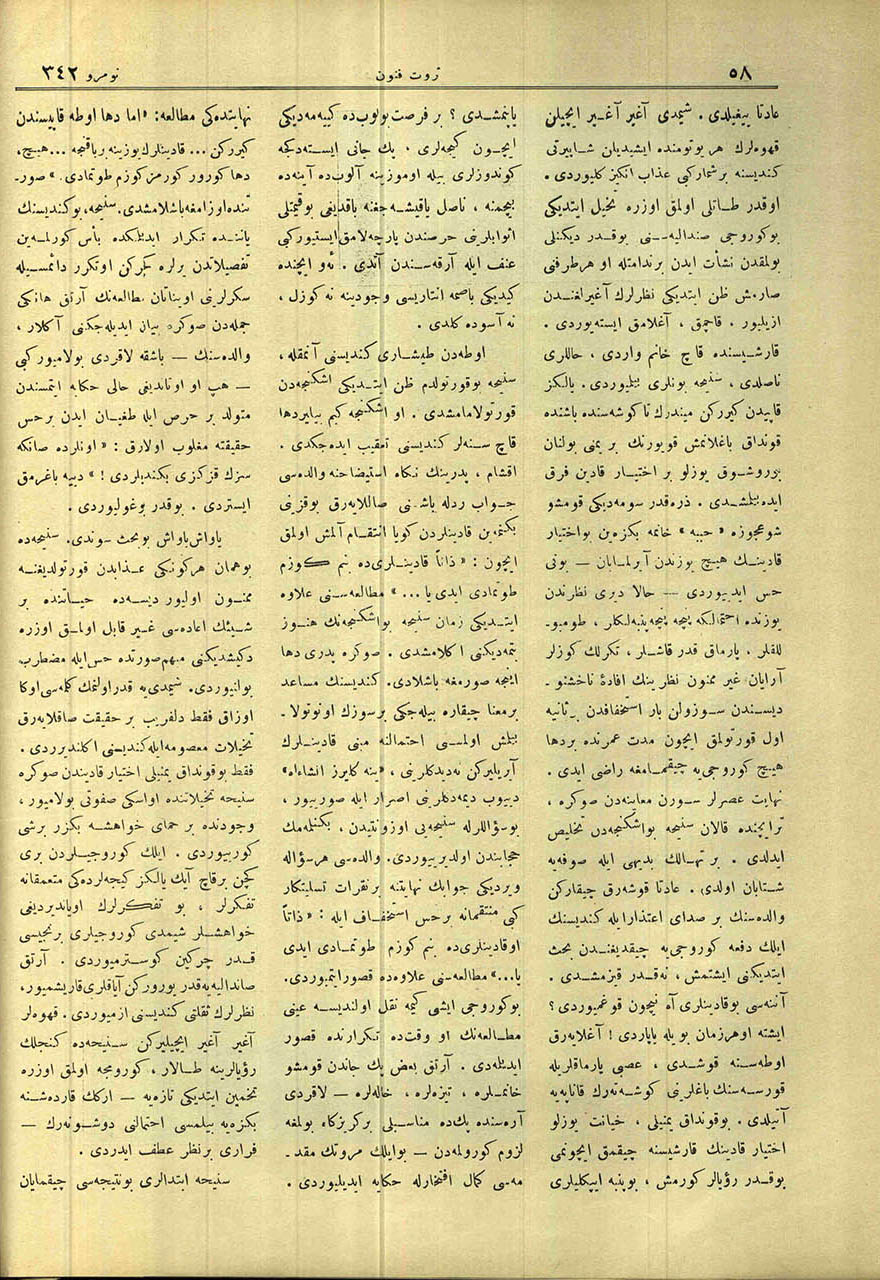 ٥٨
ثروت فنون
نومرو ٣٤٢
عادتا بیغیلدی . شیمدی آغیر آغیر ایچیلن
قهوه‌لرك هر یوتومنده ایشیدیلن شاپیرتی
كندیسنه بر شماركبی عذاب انكیز كلیوردی .
اوقدر طاتلی اولمق اوزره تخیل ایتدیكی
بوكوروجی صندالیه‌سنی بوقدر دیكنلی
بولمقدن نشأت ایدن بر ندامتله او هر طرفنی
صارمش ظن ایتدیكی نظرلرك آغیرلغندن
ازیلیور ، قاچمق ، آغلامق ایسته‌یوردی .
قارشیسنده قاچ خانم واردی ، حاللری
ناصلدی ، سنیحه بونلری بیلمیوردی . یالكز
قاپیدن كیرركن میندرك تا كوشه‌سنده باشنده
قونداق باغلانمش قویورنك بر یمنی بولنان
بوروشوق یوزلو بر اختیار قادین فرق
ایده‌بیلمشدی . ذره‌قدر سومه‌دیكی قومشو
شو عجوزه « حبیبه » خانمه بكزه‌ین بو اختیار
قادینك هیچ یوزندن آیرلمایان — بونی
حس ایدییوردی — حالا دیری نظرندن
یوزنده احتمالكه پنچه پنچه پنبه‌لكلر ، طومبو-
للقلر ، پارماق قدر قاشلر ، تكرلك كوزلر
آرایان غیر ممنون نظرینك افادهٔ ناخشنو-
دیسندن سوزولن بار استخفافدن بر ثانیه
اول قورتولمق ایچون مدت عمرنده بردها
هیچ كوروجی‌یه چیقمامغه راضی ایدی .
نهایت عصرلر سورن معاینه‌دن صوكره ،
ترایچنده قالان سنیحه بو اشكنجه‌دن تخلیص
ایدلدی . بر تهالك بدیهی ایله صوفه‌یه
شتابان اولدی . عادتا قوشه‌رق چیقاركن
والده‌سنك بر صدای اعتذار ایله كندیسنك
ایلك دفعه كوروجی‌یه چیقدیغندن بحث
ایتدیكنی ایشتمش ، نه‌قدر قیزمشدی .
آننه‌سی بوقادینلری آه نیچون قوغمیوردی ؟
ایشته اوهر زمان بویله یاپاردی ! آغلایه‌رق
اوطه‌سنه قوشدی ، عصبی پارماقلریله
قورسه‌سنك باغلرینی كوشه‌ته‌رك قاناپه‌یه
آتیلدی . بوقونداق یمنیلی ، خیانت یوزلو
اختیار قادینك قارشیسنه چیقمق ایچونمی
بوقدر رؤیالر كورمش ، بوپنبه ایپكلیلری
یاپمشدی ؟ بر فرصت بولوب‌ده كییه‌مه‌دیكی
ایچون كیجه‌لری ، پك جانی ایسته‌دكجه
كوندوزلری بیله اوموزینه آلوب‌ده آینه‌ده
بیچمنه ، ناصل یاقیشه‌جغنه باقدیغی بوقیمتلی
اثوابلرینی حرصندن پارچه‌لامق ایستیوركبی
عنف ایله آرقه‌سندن آتدی . ئه‌و ایچنده
كیدیكی باصمه انتاریسی وجودینه نه كوزل ،
نه آسوده كلدی .
اوطه‌دن طیشاری كندیسنی آتمقله ،
سنیحه بو قورتولدم ظن ایتدیكی اشكنجه‌دن
قورتولامامشدی . او اشكنجه كیم بیلیر دها
قاچ سنه‌لر كندیسنی تعقیب ایده‌جكدی .
اقشام ، پدرینك نكاه استیضاحنه والده‌سی
جواب ردله باشنی صاللایه‌رق بوقزینی
بكنمه‌ین قادینلردن كویا انتقام آلمش اولمق
ایچون : « ذاتاً قادینلری‌ده بنم كوزم
طوتمادی ایدی یا... » مطالعه‌سنی علاوه
ایتدیكی زمان سنیحه بو اشكنجه‌نك هنوز
بتمه‌دیكنی اكلامشدی . صوكره پدری دها
اینجه صورمغه باشلادی . كندیسنك مساعد
بر معنا چیقاره بیله‌جكی بر سوزك اونوتولا-
بیلمش اولمسی احتمالنه مبنی قادینلرك
آیریلیركن نه‌دیدكلرینی ، « ینه كلیرز انشاءالله »
دییوب دیمه‌دكلرینی اصرار ایله صورییور ،
بوسؤاللرله سنیحه‌یی اوزونتیدن ، بكنلمه‌مك
حجابندن اولدیرییوردی . والده‌سی هر سؤاله
ویردیكی جوابك نهایتنه بر نقرات تسلیتكار
كبی منتقمانه بر حس استخفاف ایله : « ذاتاً
اوقادینلری‌ده بنم كوزم طوتمادی ایدی
یا... » مطالعه‌سنی علاوه‌ده قصور ایتمیوردی.
بوكوروجی ایشی كیمه نقل اولندیسه عینی
مطالعه‌نك او وقت‌ده تكرارنده قصور
ایدلمه‌دی . آرتق بعض پك جاندن قومشو
خانملره ، تیزه‌لره ، خاله‌لره — لاقردی
آره‌سنده پك‌ده مناسبلی بر كریزكاه بولمغه
لزوم كورولمه‌دن — بو ایلك مروتك مقد-
مه‌سی كمال افتخارله حكایه ایدیلیوردی .
نهایتنده‌كی مطالعه : « اما دها اوطه قاپیسندن
كیرركن ... قادینلرك یوزینه ر باقنجه ... هیچ ،
دها كورور كورمز كوزم طوتمادی . » صور-
تنده اوزامغه باشلامشدی . سنیحه ، بو كندیسنك
یاننده تكرار ایدلمكده بأس كورلمه‌ین
تفصیلاتدن یرلره كچركن اوتكرر دائمسیله
سكرلرنی اویناتان مطالعه‌نك آرتق هانكی
جمله‌دن صوكره بیان ایدیله‌جكنی آكلار ،
والده‌سنك — باشقه لاقردی بولامیوركبی
— هپ او اوتاندیغی حالی حكایه ایتمسندن
متولد بر حرص ایله طغیان ایدن بر حس
حقیقته مغلوب اولارق : « اونلرده صانكه
سزك قزكزی بكندیلردی ! » دییه باغرمق
ایستردی . بوقدر بوغولیوردی .
یاواش یاواش بوبحث سوندی . سنیحه‌ده
بوهمان هركونكی عذابدن قورتولدیغنه
ممنون اولیور دیسه‌ده حیاتنده بر
شیئك اعاده‌سی غیر قابل اولمق اوزره
دكیشدیكنی مبهم صورتده حس ایله مضطرب
بولنیوردی. شیمدی‌یه قدر اولنمك كله‌سی اوكا
اوزاق فقط دلفریب بر حقیقت صاقلایه‌رق
تخیلات معصومه‌ایله كندیسنی اكلندیرردی .
فقط بوقونداق یمنیلی اختیار قادیندن صوكره
سنیحه تخیلاتنده اواسكی صفوتی بولامیور ،
وجودنده بر حمای خواهشه بكزر برشی
كورییوردی . ایلك كوروجیلردن بری
كچن برقاچ آیك یالكز كیجه‌لرده‌كی متعمقانه
تفكرلر ، بو تفكرلرك اویاندیردیغی
خواهشلر شیمدی كوروجیلری برنجیسی
قدر چركین كوسترمیوردی . آرتق
صاندالیه‌یه‌قدر یوروركن آیاقلری قاریشمیور،
نظرلرك ثقلتی كندیسنی ازمیوردی . قهوه‌لر
آغیر آغیر ایچیلیركن سنیحه‌ده كنجلك
رؤیالرینه طالار ، كورومجه اولمق اوزره
تخمین ایتدیكی تازه‌یه — اركك قارده‌شنه
بكزه‌یه بیلمسی احتمالنی دوشونه‌رك —
فراری بر نظر عطف ایدردی .
سنیحه ابتدالری بونتیجه‌سی چیقمایان